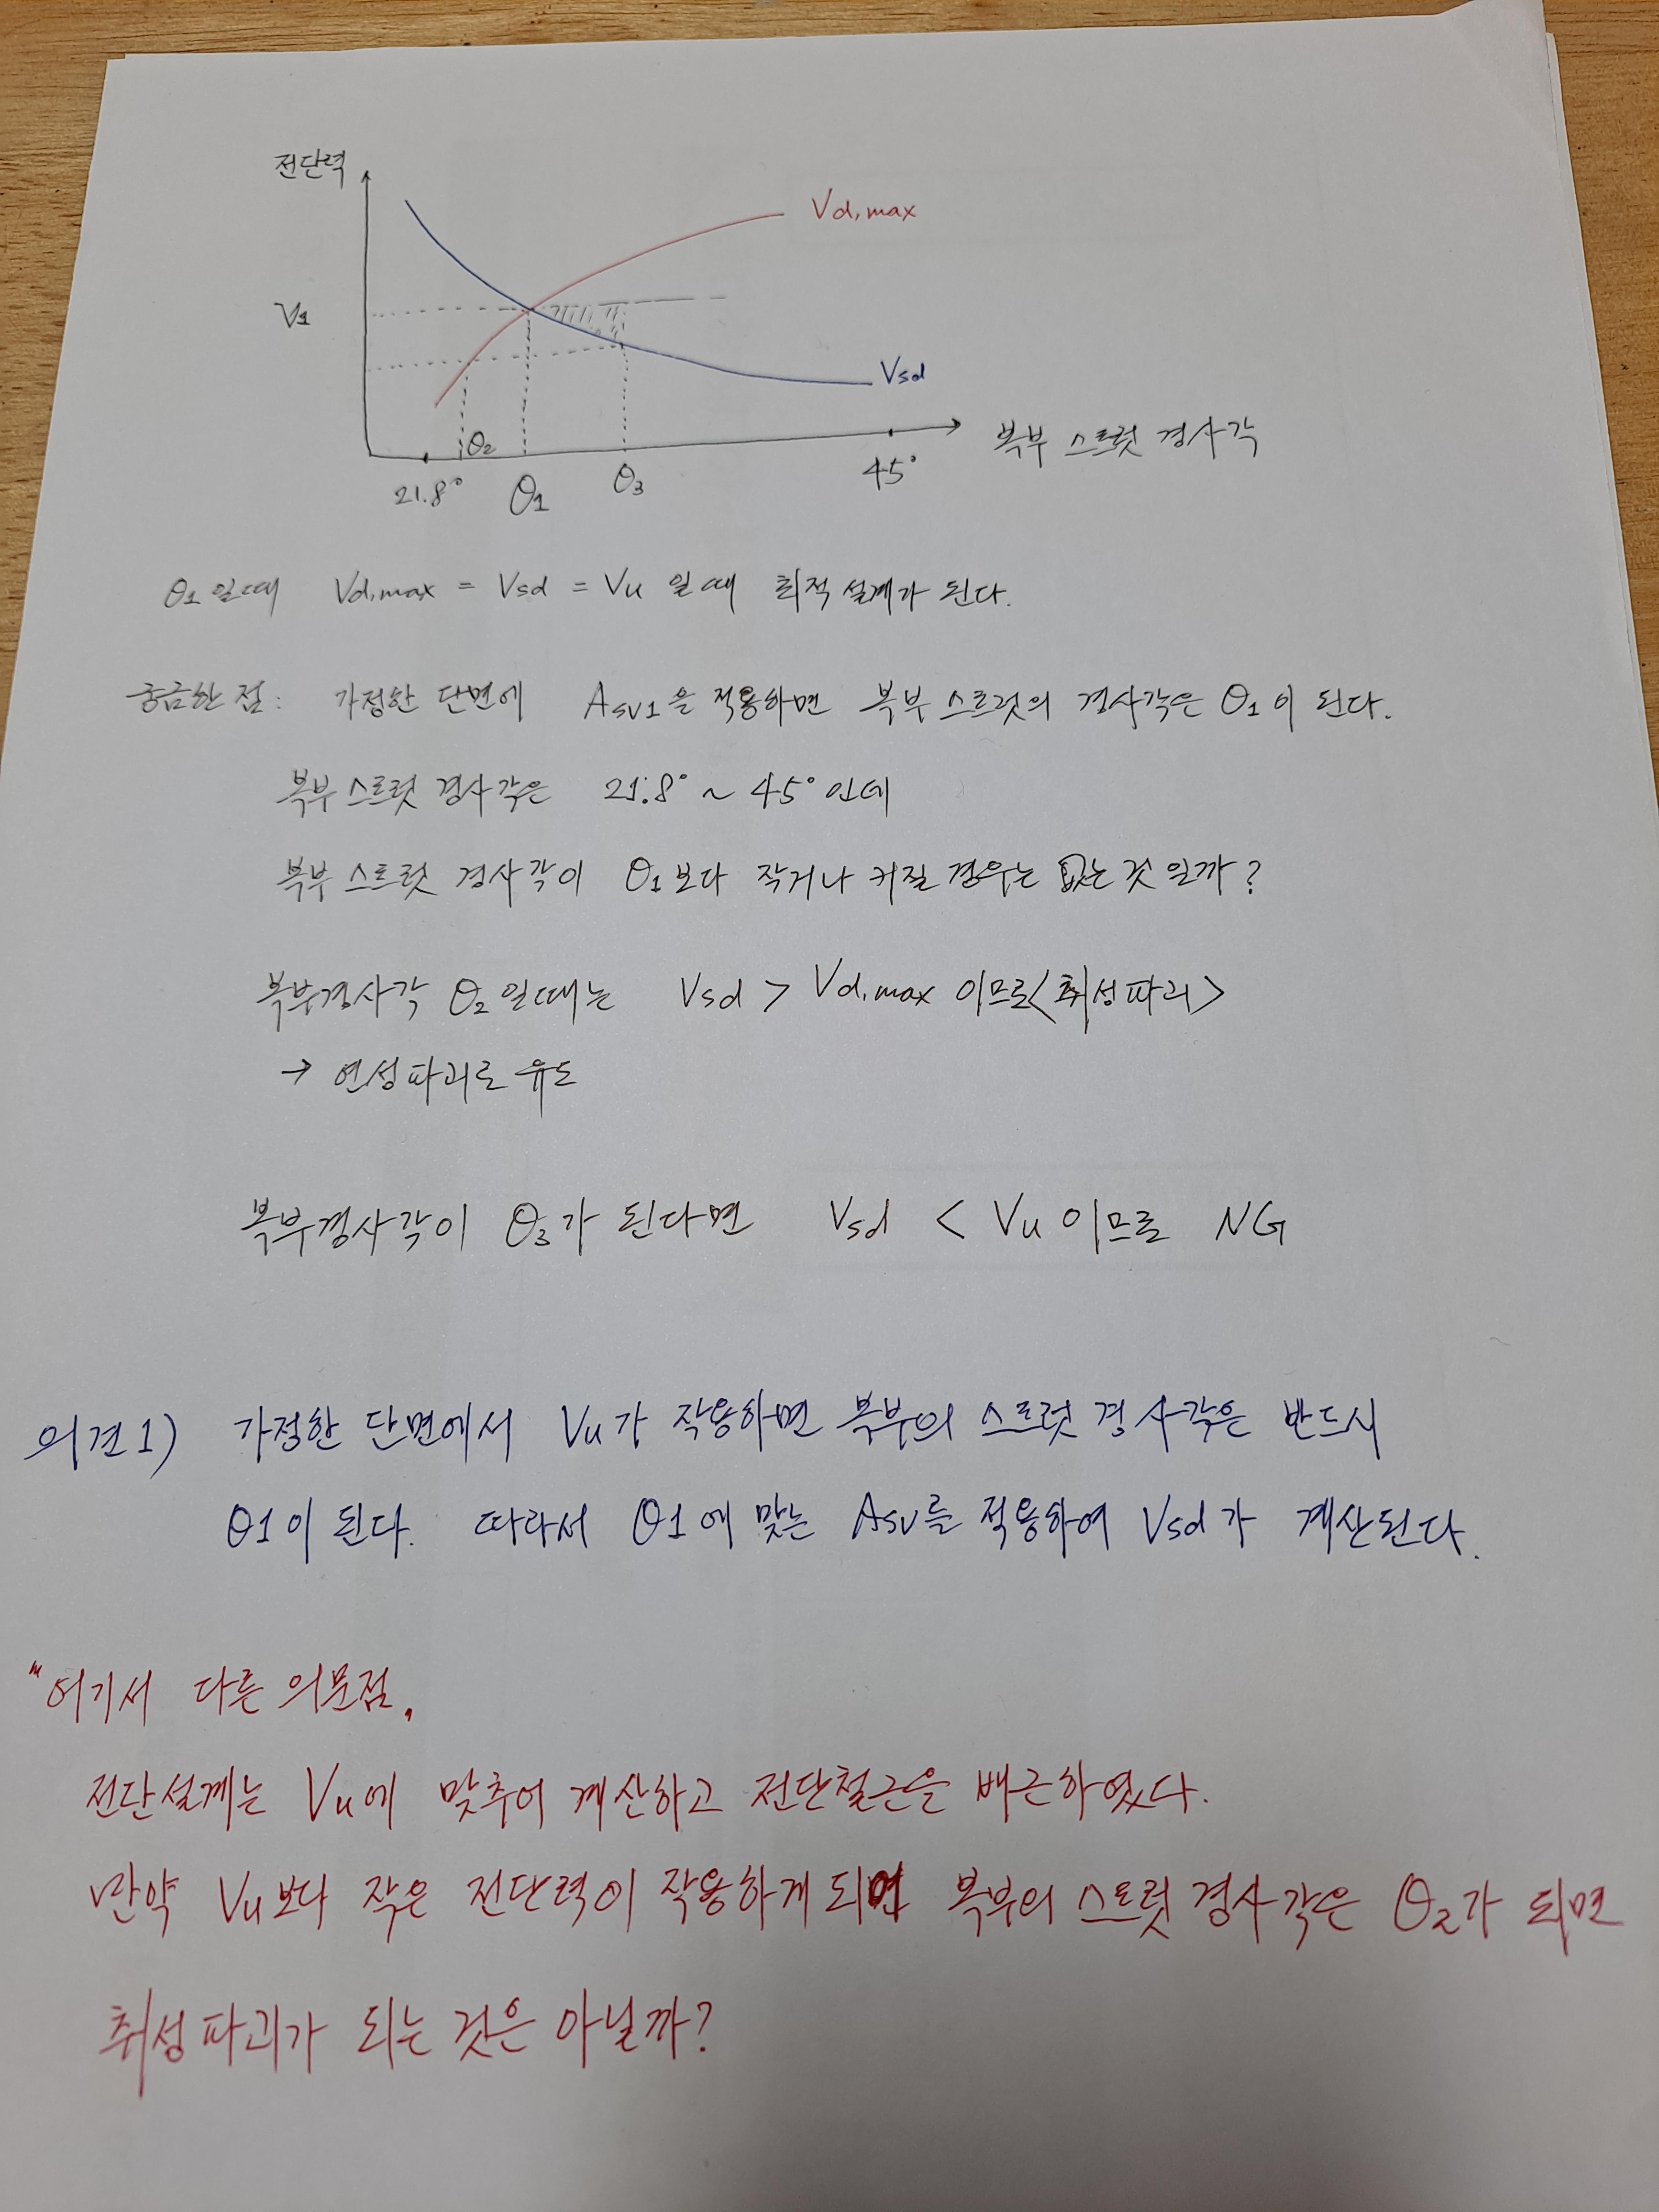 전단력
Vd,max
V1
Vsd
θ2
복부 스트럿 경사각
21.8°
θ1
θ3
45°
θ1일때 Vd,max = Vsd = Vu 일때 최적설계가 된다.
궁금한 점: 가정한 단면에 Asv1을 적용하면 복부 스트럿의 경사각은 θ1이 된다.
복부 스트럿 경사각은 21.8° ~ 45° 인데
복부 스트럿 경사각이 θ1보다 작거나 커질 경우는 없는 것 일까?
복부경사각 θ2일때는 Vsd > Vd,max 이므로<취성파괴>
→ 연성파괴로 유도
복부경사각이 θ3가 된다면 Vsd < Vu 이므로 NG
의견1) 가정한 단면에서 Vu가 작용하면 복부의 스트럿 경사각은 반드시
θ1이 된다. 따라서 θ1에 맞는 Asv를 적용하여 Vsd가 계산된다.
"여기서 다른 의문점.
전단설계는 Vu에 맞추어 계산하고 전단철근을 배근하였다.
만약 Vu보다 작은 전단력이 작용하게 되면 복부의 스트럿 경사각은 θ2가 되면
취성파괴가 되는 것은 아닐까?